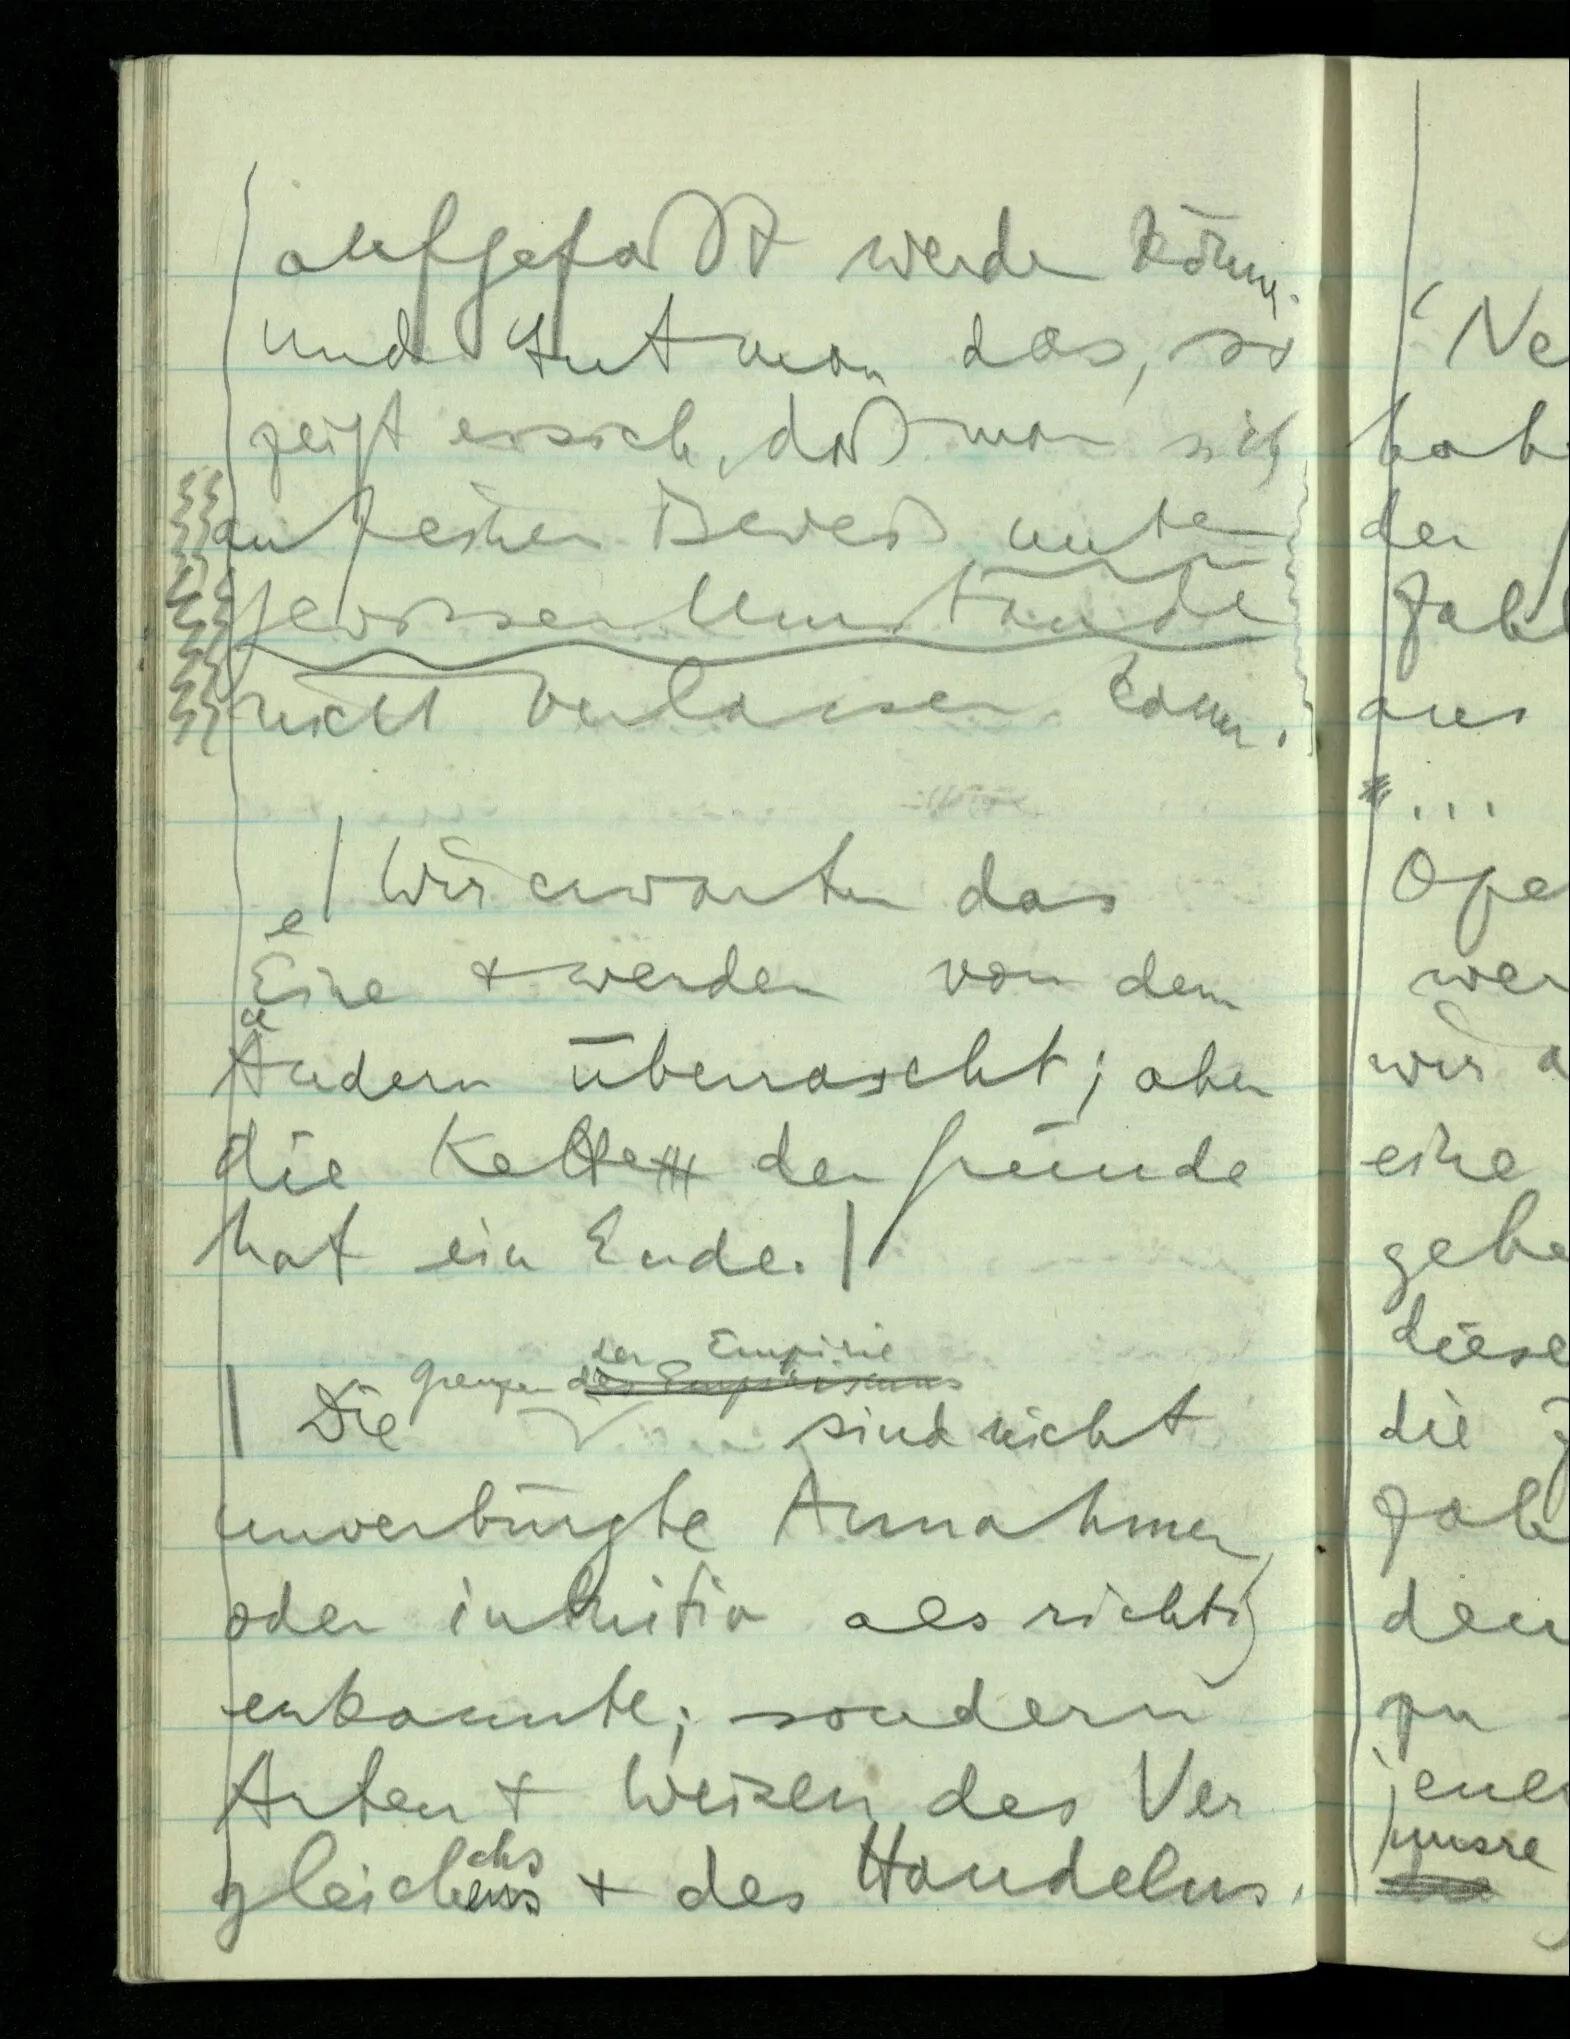 aufgefaßt werden könn.
und tut man das, so
zeigt es sich, daß man sich
auf einen Beweis unter
gewissen Umständen
nicht verlassen kann.
/ Wir erwarten das
e
Eine + werden von dem
a
Andern überrascht; aber
die Kette der Gründe
hat ein Ende. /
der Empirie
Grenzen des Empirismus
| Die sind nicht
unverbürgte Annahmen,
oder intuitiv als richtig
erkannte; sondern
Arten + Weisen des Ver
chs
gleichens + des Handelns.
'Ne
hab
der
Gab
aus
...
Ope
wer
wir a
eine
gebe
diese
die
Gab
den
zu
jene
unsre